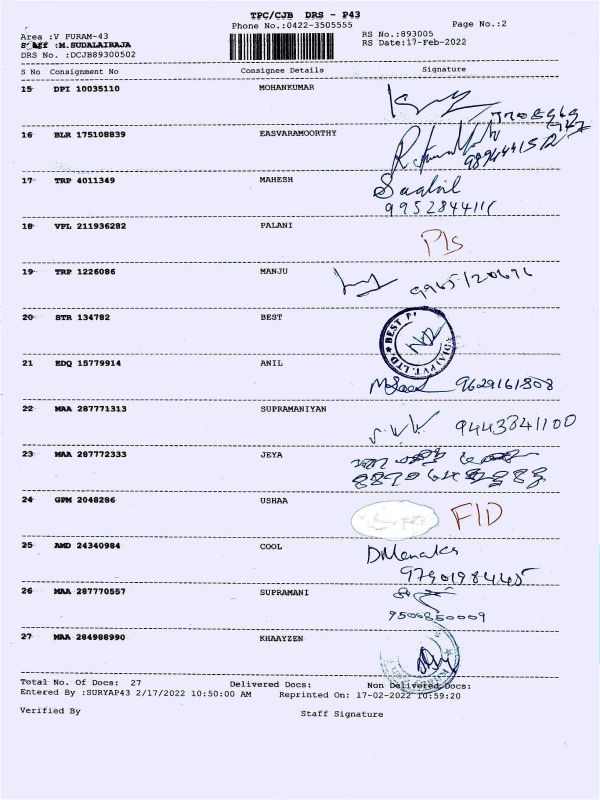 TPC/CJB DRS - P43
Phone No.:0422-3505555
Page No.:2
Area :V PURAM-43
Staff :M.SUDALAIRAJA
DRS No. :DCJB89300502
RS No.:893005
RS Date:17-Feb-2022
S No Consignment No Consignee Details Signature
15 DPI 10035110 MOHANKUMAR
16 BLR 175108839 EASVARAMOORTHY
17 TRP 4011349 MAHESH
9952844111
18 VPL 211936282 PALANI
P/s
19 TRP 1226086 MANJU
9965120696
20 STR 134782 BEST
BEST P
PVT. LTD.
21 EDQ 15779914 ANIL
9629161808
22 MAA 287771313 SUPRAMANIYAN
9443841100
23 MAA 287772333 JEYA
24 GPM 2048286 USHAA
F/D
25 AMD 24340984 COOL
D.Menaka
26 MAA 287770557 SUPRAMANI
9500850009
27 MAA 284988990 KHAAYZEN
Total No. Of Docs: 27 Delivered Docs: Non Delivered Docs:
Entered By :SURYAP43 2/17/2022 10:50:00 AM Reprinted On: 17-02-2022 10:59:20
Verified By Staff Signature